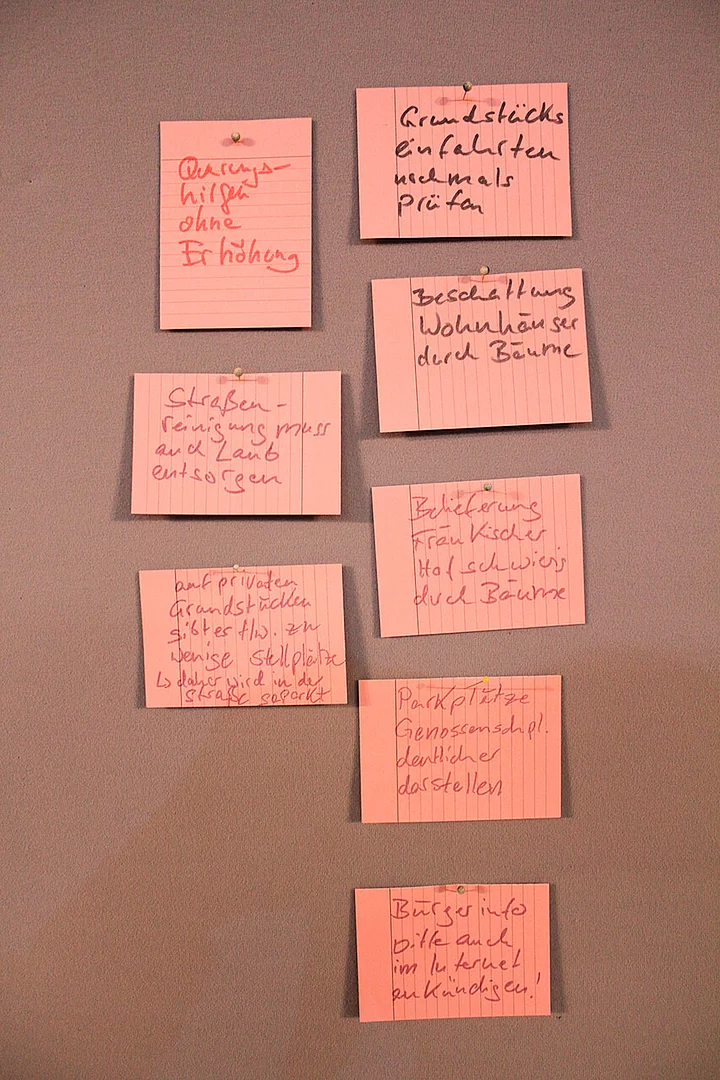 Querungs-
hilfen
ohne
Erhöhung
Straßen-
reinigung muss
auch Laub
entsorgen
auf privaten
Grundstücken
gibt es tlw. zu
wenige Stellplätze
↳ daher wird in der
Straße geparkt
Grundstücks
einfahrten
nochmals
prüfen
Beschattung
Wohnhäuser
durch Bäume
Belieferung
Fränkischer
Hof schwierig
durch Bäume
Parkplätze
Genossenschpl.
deutlicher
darstellen
Bürgerinfo
bitte auch
im Internet
ankündigen!